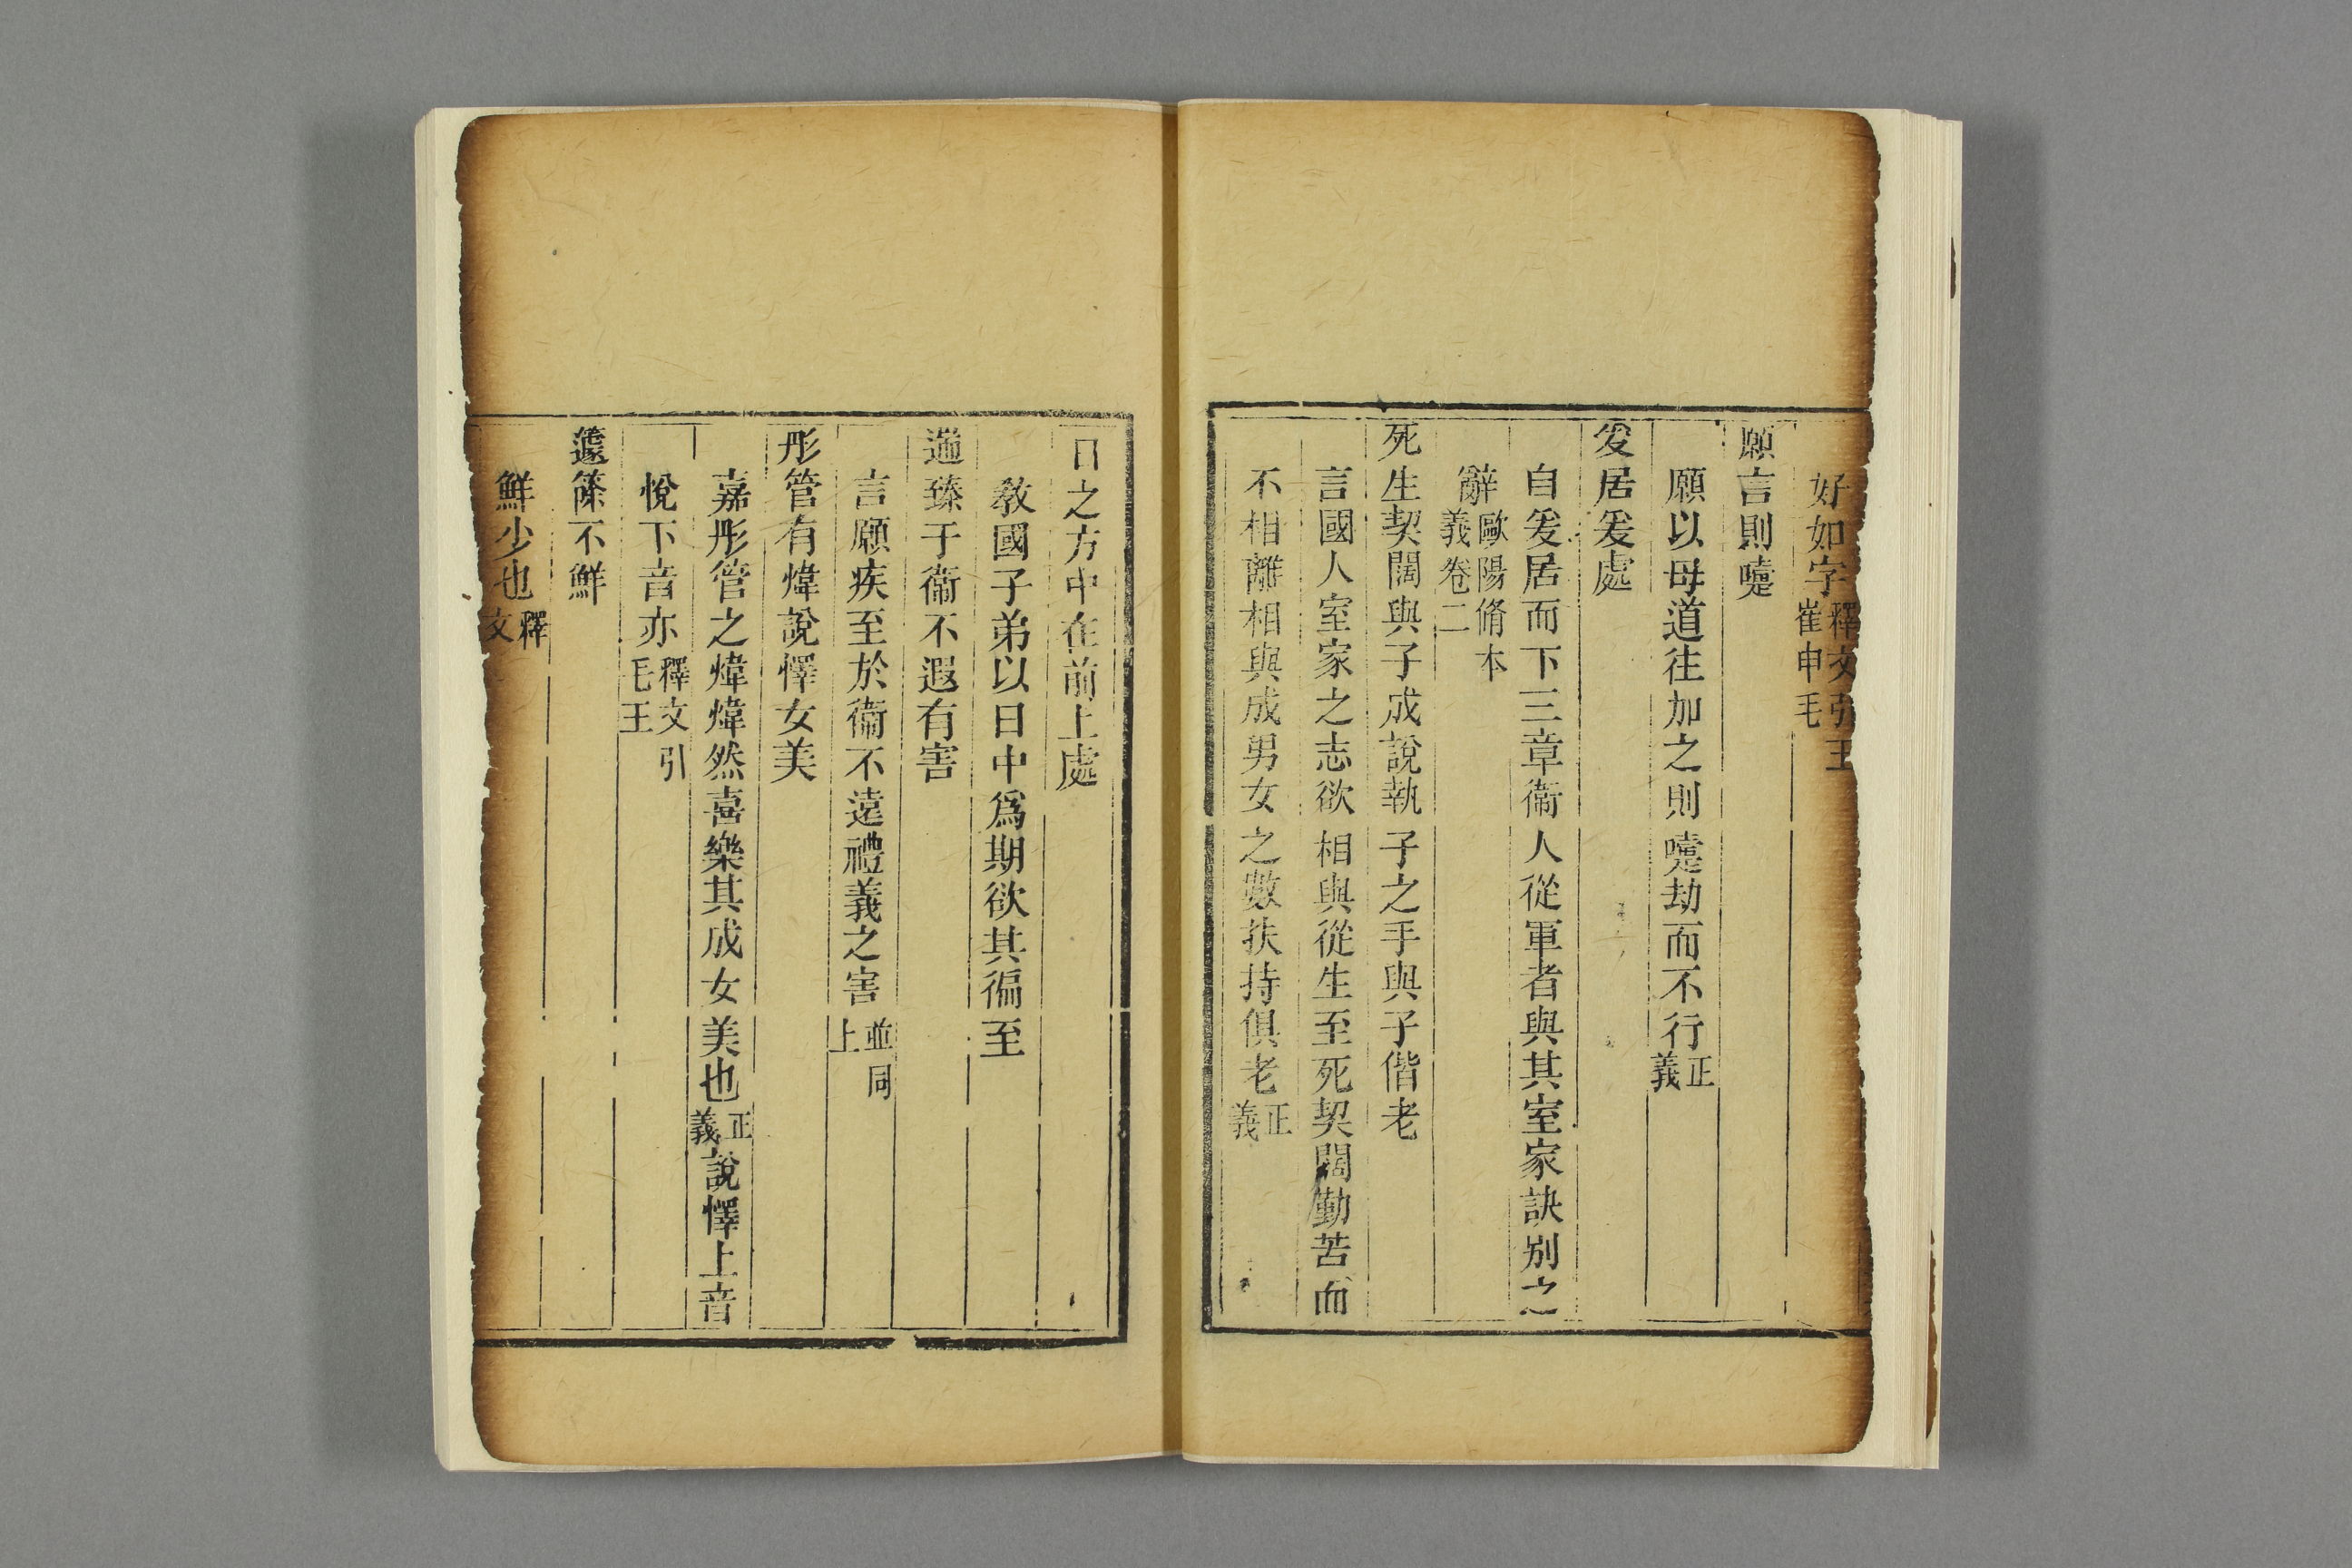 好如字釋文引王崔申毛
願言則嚏
願以母道往加之則嚏劫而不行正義
爰居爰處
自爰居而下三章衞人從軍者與其室家訣别之
辭歐陽脩本義卷二
死生契闊與子成說執子之手與子偕老
言國人室家之志欲相與從生至死契闊勤苦而
不相離相與成男女之數扶持俱老正義
日之方中在前上處
敎國子弟以日中爲期欲其徧至
遄臻于衞不遐有害
言願疾至於衞不遠禮義之害並同上
彤管有煒說懌女美
嘉彤管之煒煒然喜樂其成女美也正義說懌上音
悅下音亦釋文引毛王
籧篨不鮮
鮮少也釋文